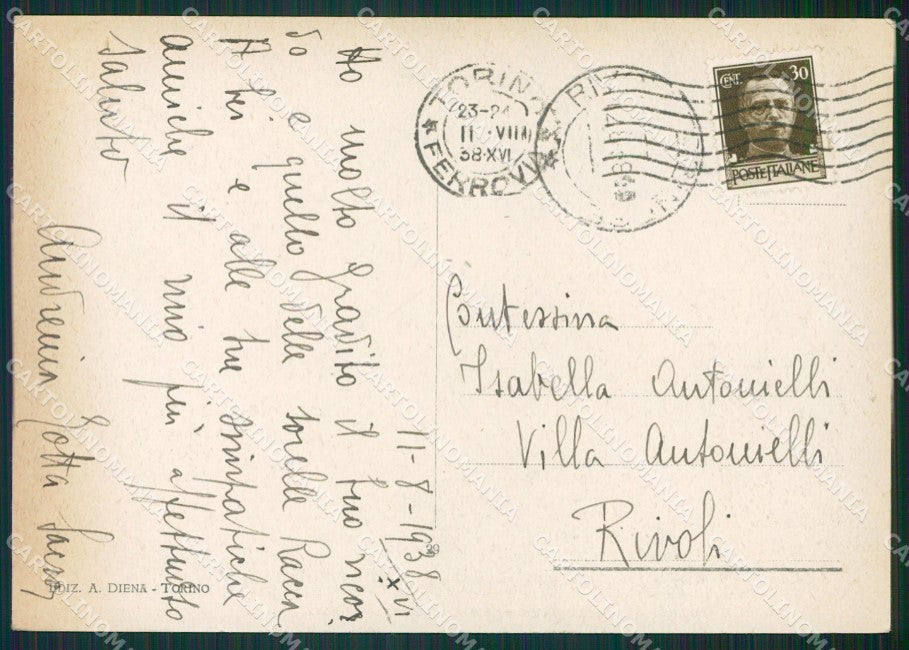 11-8-1938
XVI
Ho molto gradito il tuo ricor
do e quello delle sorelle
A te e alle tue simpatiche
amiche il mio più affettuoso
saluto
Gotta
EDIZ. A. DIENA - TORINO
TORINO
23-24
11 · VIII
38·XVI
FERROVIA
CENT. 30
POSTE ITALIANE
Contessina
Isabella Antonielli
Villa Antonielli
Rivoli
CARTOLINOMANIA